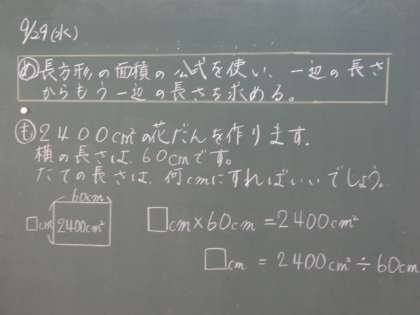 9/29(水)
め 長方形の面積の公式を使い、一辺の長さ
からもう一辺の長さを求める。
も 2400cm²の花だんを作ります。
横の長さは、60cmです。
たての長さは、何cmにすればいいでしょう。
60cm
□cm 2400cm²
□cm×60cm=2400cm²
□cm = 2400cm²÷60cm